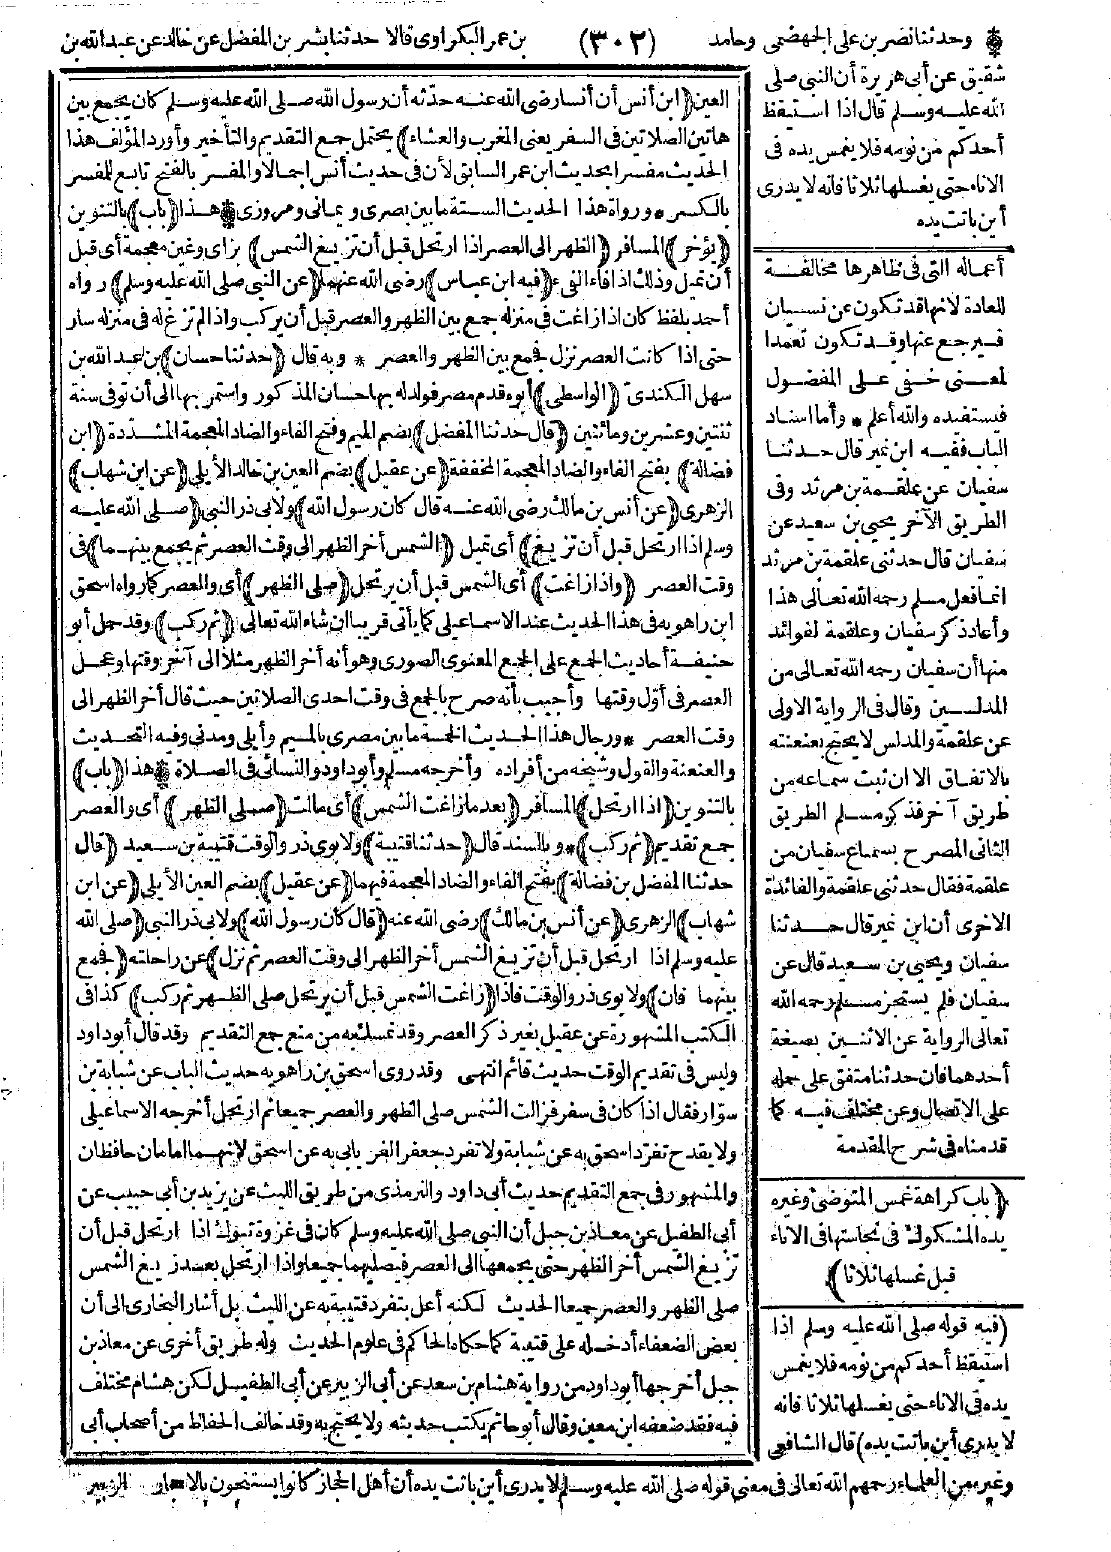 * وحدثنا نصر بن على الجهضمى وحامد (٣٠٢) بن عمر البكراوى قالا حدثنا بشر بن المفضل عن خالد عن عبد الله بن
شقيق عن أبى هريرة أن النبى صلى
الله عليه وسلم قال اذا استيقظ
أحدكم من نومه فلا يغمس يده فى
الاناء حتى يغسلها ثلاثا فانه لا يدرى
أين باتت يده
أعماله التى فى ظاهرها مخالفة
للعادة لانها قد تكون عن نسيان
فيرجع عنها وقد تكون تعمدا
لمعنى خفى على المفضول
فيستفيده والله أعلم * وأما اسناد
الباب ففيه ابن نمير قال حدثنا
سفيان عن علقمة بن مرثد وفى
الطريق الآخر يحيى بن سعيد عن
سفيان قال حدثنى علقمة بن مرثد
انما فعل مسلم رحمه الله تعالى هذا
وأعاد ذكر سفيان وعلقمة لفوائد
منها أن سفيان رحمه الله تعالى من
المدلسين وقال فى الرواية الاولى
عن علقمة والمدلس لا يحتج بعنعنته
بالاتفاق الا ان ثبت سماعه من
طريق آخر فذكر مسلم الطريق
الثانى المصرح بسماع سفيان من
علقمة فقال حدثنى علقمة والفائدة
الاخرى أن ابن نمير قال حدثنا
سفيان ويحيى بن سعيد قال عن
سفيان فلم يستجز مسلم رحمه الله
تعالى الرواية عن الاثنين بصيغة
أحدهما فان حدثنا متفق على حمله
على الاتصال وعن مختلف فيه كما
قدمناه فى شرح المقدمة
(باب كراهة غمس المتوضئ وغيره
يده المشكوك فى نجاستها فى الاناء
قبل غسلها ثلاثا)
(فيه قوله صلى الله عليه وسلم اذا
استيقظ أحدكم من نومه فلا يغمس
يده فى الاناء حتى يغسلها ثلاثا فانه
لا يدرى أين باتت يده) قال الشافعى
وغيره من العلماء رحمهم الله تعالى فى معنى قوله صلى الله عليه وسلم لا يدرى أين باتت يده أن أهل الحجاز كانوا يستنجون بالاحجار
العين (ابن أنس أن أنسا رضى الله عنه حدثه أن رسول الله صلى الله عليه وسلم كان يجمع بين
هاتين الصلاتين فى السفر يعنى المغرب والعشاء) يحتمل جمع التقديم والتأخير وأورد المؤلف هذا
الحديث مفسرا بحديث ابن عمر السابق لأن فى حديث أنس اجمالا والمفسر بالفتح تابع للمفسر
بالكسر * ورواة هذا الحديث الستة ما بين بصرى ويمانى ومروزى * هذا (باب) بالتنوين
(يؤخر) المسافر (الظهر الى العصر اذا ارتحل قبل أن تزيغ الشمس) بزاى وغين معجمة أى قبل
أن تميل وذلك اذا فاء الفىء (فيه ابن عباس) رضى الله عنهما (عن النبى صلى الله عليه وسلم) رواه
أحمد بلفظ كان اذا زاغت فى منزله جمع بين الظهر والعصر قبل أن يركب واذا لم تزغ له فى منزله سار
حتى اذا كانت العصر نزل فجمع بين الظهر والعصر * وبه قال (حدثنا حسان) بن عبد الله بن
سهل الكندى (الواسطى) أبوه قدم مصر فولد له بها حسان المذكور واستمر بها الى أن توفى سنة
ثنتين وعشرين ومائتين (قال حدثنا المفضل) بضم الميم وفتح الفاء والضاد المعجمة المشددة (ابن
فضالة) بفتح الفاء والضاد المعجمة المخففة (عن عقيل) بضم العين بن خالد الأيلى (عن ابن شهاب)
الزهرى (عن أنس بن مالك رضى الله عنه قال كان رسول الله) ولابى ذر النبى (صلى الله عليه
وسلم اذا ارتحل قبل أن تزيغ) أى تميل (الشمس أخر الظهر الى وقت العصر ثم يجمع بينهما) فى
وقت العصر (واذا زاغت) أى الشمس قبل أن يرتحل (صلى الظهر) أى والعصر كما رواه اسحق
ابن راهويه فى هذا الحديث عند الاسماعيلى كما يأتى قريبا ان شاء الله تعالى (ثم ركب) وقد حمل أبو
حنيفة أحاديث الجمع على الجمع المعنوى الصورى وهو أنه أخر الظهر مثلا الى آخر وقتها وعجل
العصر فى أول وقتها وأجيب بأنه صرح بالجمع فى وقت احدى الصلاتين حيث قال أخر الظهر الى
وقت العصر * ورجال هذا الحديث الخمسة ما بين مصرى بالميم وأيلى ومدنى وفيه التحديث
والعنعنة والقول وشيخه من أفراده وأخرجه مسلم وأبو داود والنسائى فى الصلاة * هذا (باب)
بالتنوين (اذا ارتحل) المسافر (بعد ما زاغت الشمس) أى مالت (صلى الظهر) أى والعصر
جمع تقديم (ثم ركب) * وبالسند قال (حدثنا قتيبة) ولابوى ذر والوقت قتيبة بن سعيد (قال
حدثنا المفضل بن فضالة) بفتح الفاء والضاد المعجمة فيهما (عن عقيل) بضم العين الأيلى (عن ابن
شهاب) الزهرى (عن أنس بن مالك) رضى الله عنه (قال كان رسول الله) ولابى ذر النبى (صلى الله
عليه وسلم اذا ارتحل قبل أن تزيغ الشمس أخر الظهر الى وقت العصر ثم نزل) عن راحلته (فجمع
بينهما فان) ولابوى ذر والوقت فاذا (زاغت الشمس قبل أن يرتحل صلى الظهر ثم ركب) كذا فى
الكتب المشهورة عن عقيل بغير ذكر العصر وقد تمسك به من منع جمع التقديم وقد قال أبو داود
وليس فى تقديم الوقت حديث قائم انتهى وقد روى اسحق بن راهويه حديث الباب عن شبابة بن
سوار فقال اذا كان فى سفر فزالت الشمس صلى الظهر والعصر جميعا ثم ارتحل أخرجه الاسماعيلى
ولا يقدح تفرد اسحق به عن شبابة ولا تفرد جعفر الفريابى به عن اسحق لانهما امامان حافظان
والمشهور فى جمع التقديم حديث أبى داود والترمذى من طريق الليث عن يزيد بن أبى حبيب عن
أبى الطفيل عن معاذ بن جبل أن النبى صلى الله عليه وسلم كان فى غزوة تبوك اذا ارتحل قبل أن
تزيغ الشمس أخر الظهر حتى يجمعها الى العصر فيصليهما جميعا واذا ارتحل بعد زيغ الشمس
صلى الظهر والعصر جميعا الحديث لكنه أعل بتفرد قتيبة به عن الليث بل أشار البخارى الى أن
بعض الضعفاء أدخله على قتيبة كما حكاه الحاكم فى علوم الحديث وله طريق أخرى عن معاذ بن
جبل أخرجها أبو داود من رواية هشام بن سعد عن أبى الزبير عن أبى الطفيل لكن هشام مختلف
فيه فقد ضعفه ابن معين وقال أبو حاتم يكتب حديثه ولا يحتج به وقد خالف الحفاظ من أصحاب أبى
الزبير